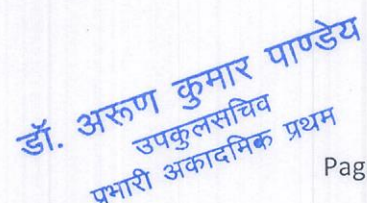 डॉ. अरूण कुमार पाण्डेय
उपकुलसचिव
प्रभारी अकादमिक प्रथम
Pag